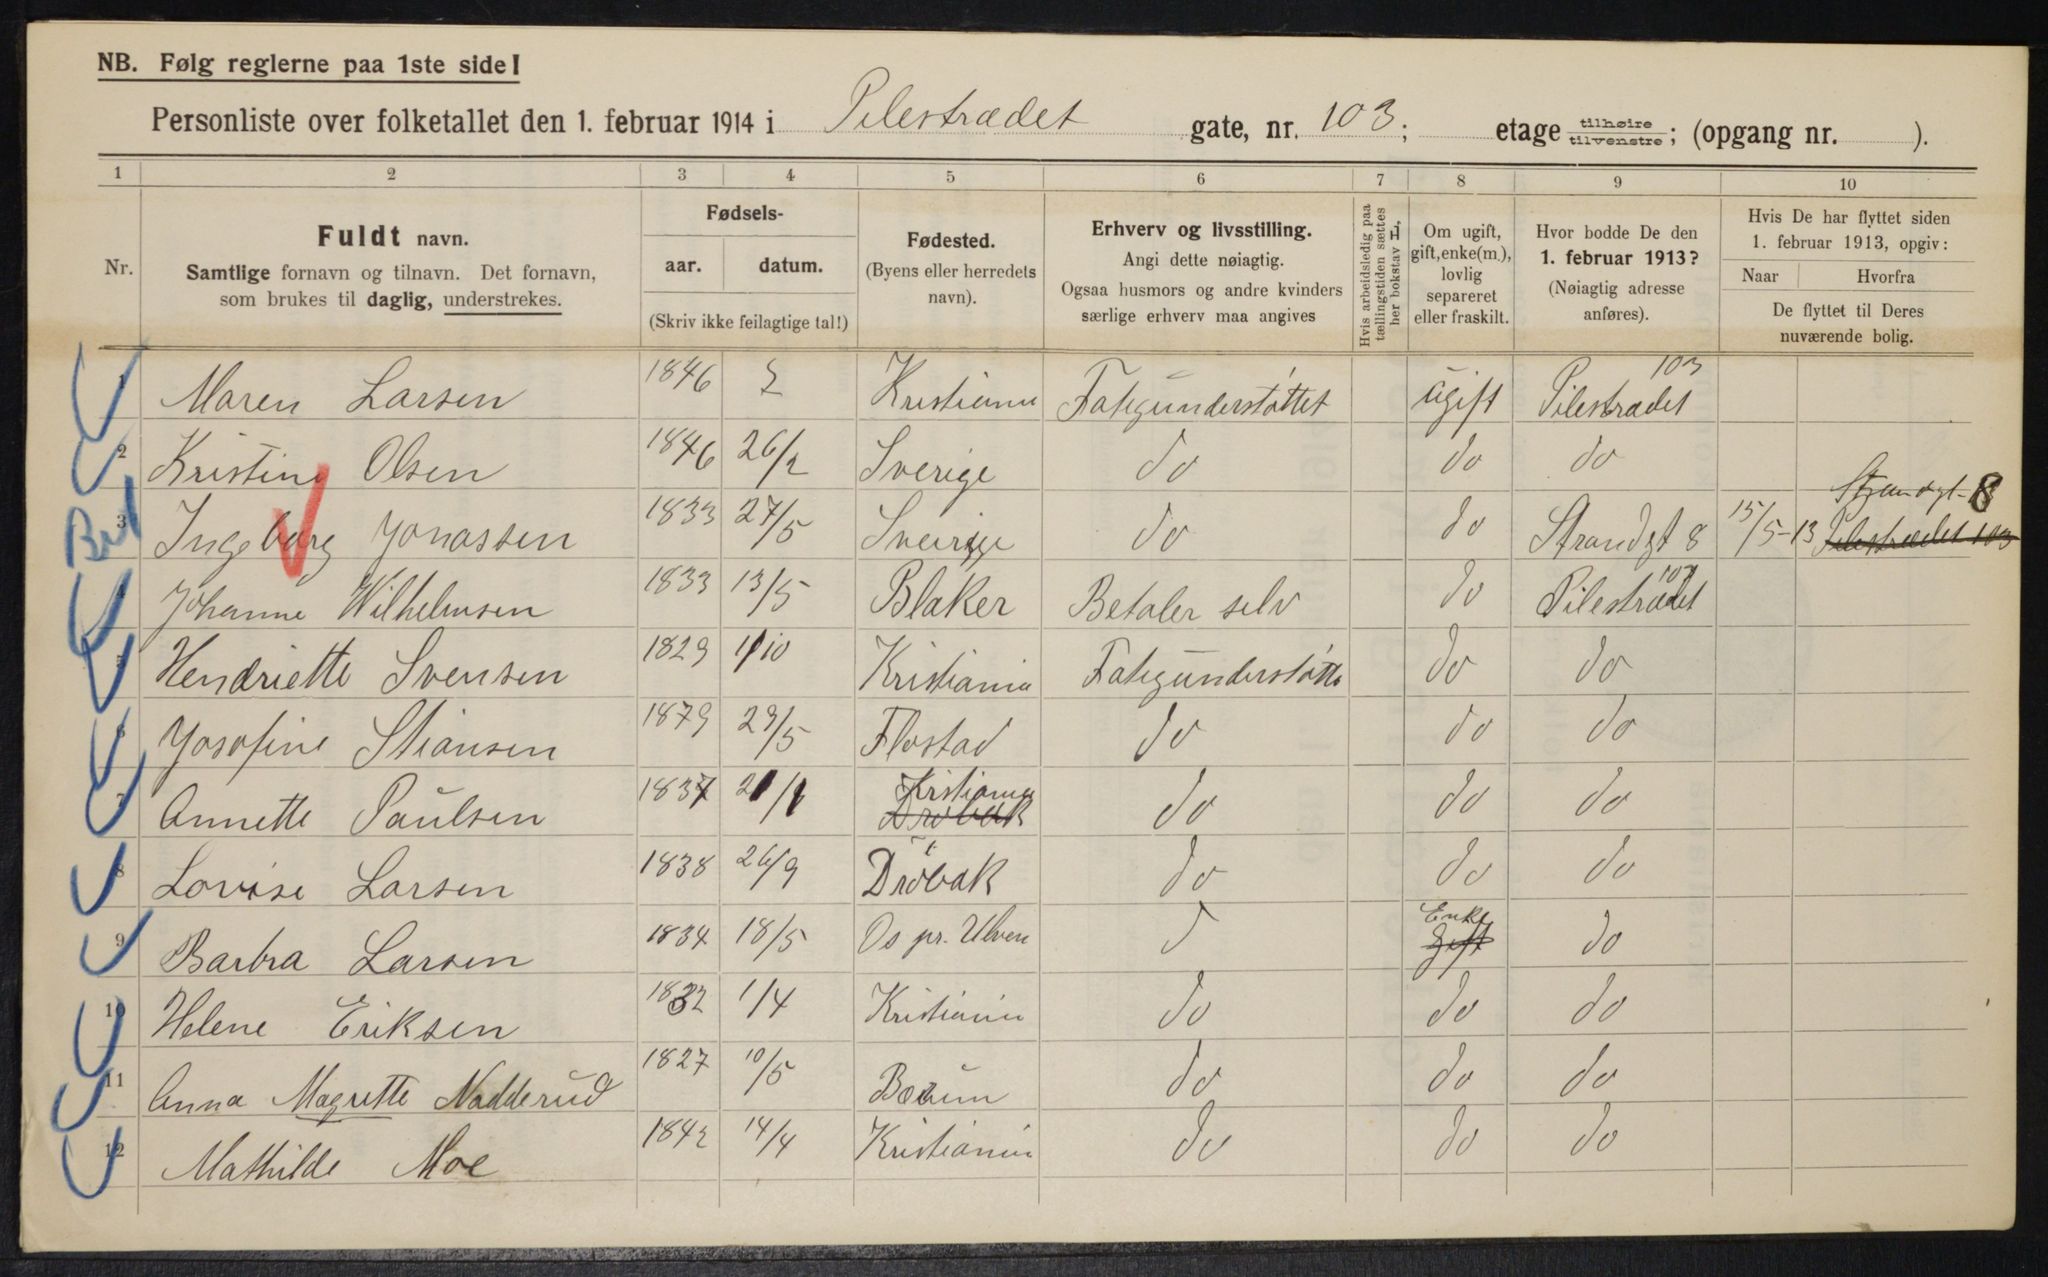 NB. Følg reglerne paa 1ste side!
Personliste over folketallet den 1. februar 1914 i Pilestrædet gate, nr. 103; etage tilhøire/tilvenstre; (opgang nr. ).
1 2 3 4 5 6 7 8 9 10
Nr.
Fuldt navn.
Samtlige fornavn og tilnavn. Det fornavn,
som brukes til daglig, understrekes.
Fødsels-
aar. datum.
(Skriv ikke feilagtige tal!)
Fødested.
(Byens eller herredets
navn).
Erhverv og livsstilling.
Angi dette nøiagtig.
Ogsaa husmors og andre kvinders
særlige erhverv maa angives
Hvis arbeidsledig paa
tællingstiden sættes
her bokstav L.
Om ugift,
gift, enke(m.),
lovlig
separeret
eller fraskilt.
Hvor bodde De den
1. februar 1913?
(Nøiagtig adresse
anføres).
Hvis De har flyttet siden
1. februar 1913, opgiv:
Naar Hvorfra
De flyttet til Deres
nuværende bolig.
1 Maren Larsen 1846 Kristiania Fatigunderstøttet ugift Pilestrædet 103
2 Kristine Olsen 1846 26/2 Sverige do do do
3 Ingeborg Jonassen 1833 27/5 Sverige do do Strandgt 8 15/5-13 Strandgt 8 Pilestrædet 103
4 Johanne Wilhelmsen 1833 13/5 Blaker Betaler selv do Pilestrædet 103
5 Hendriette Svensen 1829 1/10 Kristiania Fatigunderstøtte do do
6 Josofine Stiansen 1879 29/5 Flostad do do do
7 Annette Paulsen 1837 21/1 Kristiania Drøbak do do do
8 Lovise Larsen 1838 26/9 Drøbak do do do
9 Barbra Larsen 1834 18/5 Os pr. Ulven Enke Gift do
10 Helene Eriksen 1832 1/4 Kristiania do do do
11 Anna Magrette Nadderud 1827 10/5 Bærum do do do
12 Mathilde Moe 1842 14/4 Kristiania do do do